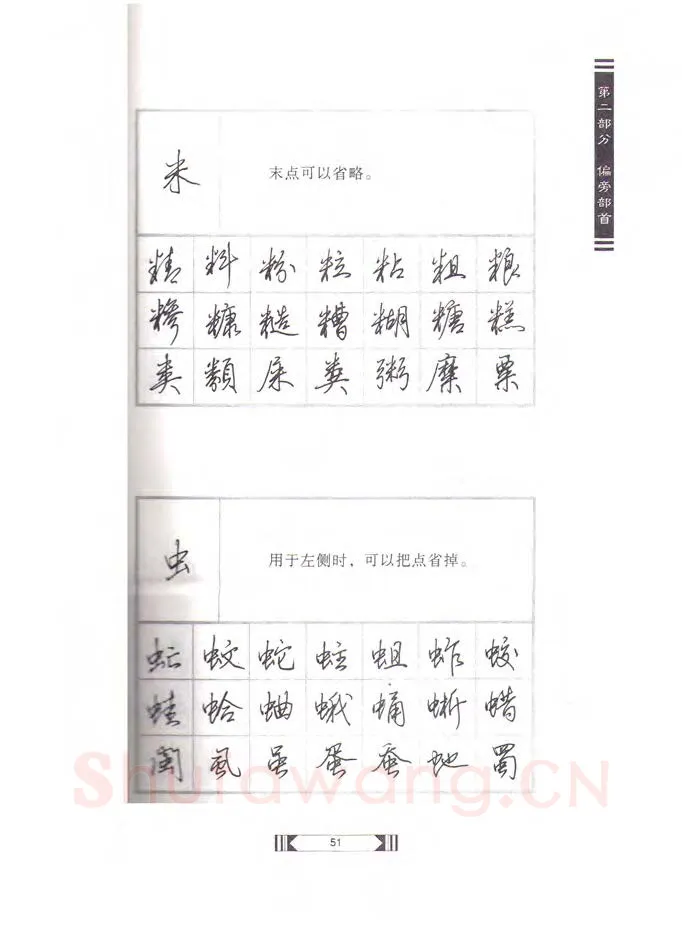 第二部分 偏旁部首
米
末点可以省略。
精 料 粉 粒 粘 粗 粮
糁 糠 糙 糟 糊 糖 糕
类 類 屎 粪 粥 糜 栗
虫
用于左侧时，可以把点省掉。
虻 蚊 蛇 蛀 蛆 蚱 蛟
蛙 蛤 蛐 蛾 蛹 蜥 蜡
闽 虱 虽 蛋 蚕 虵 蜀
Shufawang.CN
51